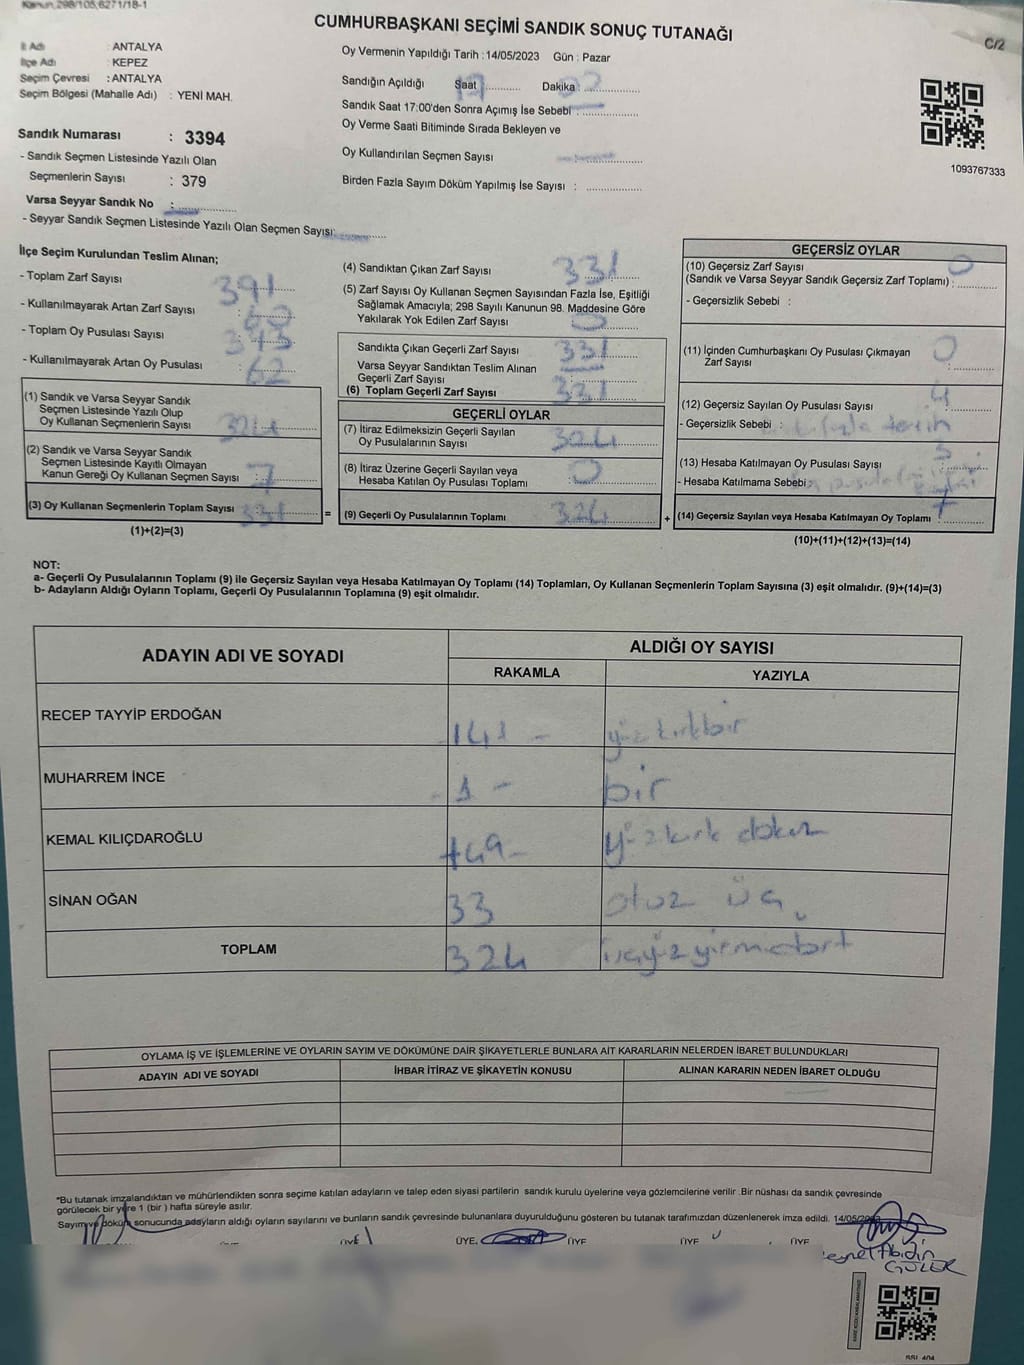 Kanun.298/105,6271/18-1
CUMHURBAŞKANI SEÇİMİ SANDIK SONUÇ TUTANAĞI
C/2
İl Adı : ANTALYA
İlçe Adı : KEPEZ
Seçim Çevresi : ANTALYA
Seçim Bölgesi (Mahalle Adı) : YENİ MAH.
Oy Vermenin Yapıldığı Tarih : 14/05/2023 Gün : Pazar
Sandığın Açıldığı Saat 17 Dakika : 02
Sandık Saat 17:00'den Sonra Açımış İse Sebebi :
Oy Verme Saati Bitiminde Sırada Bekleyen ve
Oy Kullandırılan Seçmen Sayısı
Birden Fazla Sayım Döküm Yapılmış İse Sayısı :
1093767333
Sandık Numarası : 3394
- Sandık Seçmen Listesinde Yazılı Olan
Seçmenlerin Sayısı : 379
Varsa Seyyar Sandık No :
- Seyyar Sandık Seçmen Listesinde Yazılı Olan Seçmen Sayısı:
İlçe Seçim Kurulundan Teslim Alınan;
- Toplam Zarf Sayısı 391
- Kullanılmayarak Artan Zarf Sayısı : 60
- Toplam Oy Pusulası Sayısı : 393
- Kullanılmayarak Artan Oy Pusulası : 62
(1) Sandık ve Varsa Seyyar Sandık
Seçmen Listesinde Yazılı Olup
Oy Kullanan Seçmenlerin Sayısı : 324
(2) Sandık ve Varsa Seyyar Sandık
Seçmen Listesinde Kayıtlı Olmayan
Kanun Gereği Oy Kullanan Seçmen Sayısı : 7
(3) Oy Kullanan Seçmenlerin Toplam Sayısı : 331 =
(1)+(2)=(3)
(4) Sandıktan Çıkan Zarf Sayısı 331
(5) Zarf Sayısı Oy Kullanan Seçmen Sayısından Fazla İse, Eşitliği
Sağlamak Amacıyla; 298 Sayılı Kanunun 98. Maddesine Göre
Yakılarak Yok Edilen Zarf Sayısı 0
Sandıkta Çıkan Geçerli Zarf Sayısı 331
Varsa Seyyar Sandıktan Teslim Alınan
Geçerli Zarf Sayısı
(6) Toplam Geçerli Zarf Sayısı 331
GEÇERLİ OYLAR
(7) İtiraz Edilmeksizin Geçerli Sayılan
Oy Pusulalarının Sayısı 324
(8) İtiraz Üzerine Geçerli Sayılan veya
Hesaba Katılan Oy Pusulası Toplamı 0
(9) Geçerli Oy Pusulalarının Toplamı 324 +
GEÇERSİZ OYLAR
(10) Geçersiz Zarf Sayısı 0
(Sandık ve Varsa Seyyar Sandık Geçersiz Zarf Toplamı) :
- Geçersizlik Sebebi :
(11) İçinden Cumhurbaşkanı Oy Pusulası Çıkmayan
Zarf Sayısı 0
(12) Geçersiz Sayılan Oy Pusulası Sayısı 4
- Geçersizlik Sebebi : fazla tercih
(13) Hesaba Katılmayan Oy Pusulası Sayısı : 3
- Hesaba Katılmama Sebebi:
(14) Geçersiz Sayılan veya Hesaba Katılmayan Oy Toplamı : 7
(10)+(11)+(12)+(13)=(14)
NOT:
a- Geçerli Oy Pusulalarının Toplamı (9) ile Geçersiz Sayılan veya Hesaba Katılmayan Oy Toplamı (14) Toplamları, Oy Kullanan Seçmenlerin Toplam Sayısına (3) eşit olmalıdır. (9)+(14)=(3)
b- Adayların Aldığı Oyların Toplamı, Geçerli Oy Pusulalarının Toplamına (9) eşit olmalıdır.
ADAYIN ADI VE SOYADI
ALDIĞI OY SAYISI
RAKAMLA YAZIYLA
RECEP TAYYİP ERDOĞAN 141 - yüz kırkbir
MUHARREM İNCE - 1 - bir
KEMAL KILIÇDAROĞLU 149 - yüz kırk dokuz
SİNAN OĞAN 33 otuz üç
TOPLAM 324 üçyüz yirmidört
OYLAMA İŞ VE İŞLEMLERİNE VE OYLARIN SAYIM VE DÖKÜMÜNE DAİR ŞİKAYETLERLE BUNLARA AİT KARARLARIN NELERDEN İBARET BULUNDUKLARI
ADAYIN ADI VE SOYADI İHBAR İTİRAZ VE ŞİKAYETİN KONUSU ALINAN KARARIN NEDEN İBARET OLDUĞU
*Bu tutanak imzalandıktan ve mühürlendikten sonra seçime katılan adayların ve talep eden siyasi partilerin sandık kurulu üyelerine veya gözlemcilerine verilir .Bir nüshası da sandık çevresinde
görülecek bir yere 1 (bir ) hafta süreyle asılır.
Sayım ve döküm sonucunda adayların aldığı oyların sayılarını ve bunların sandık çevresinde bulunanlara duyurulduğunu gösteren bu tutanak tarafımızdan düzenlenerek imza edildi. 14/05/20
ÜYE ÜYE. ÜYE ÜYE ÜYE
GÜLER